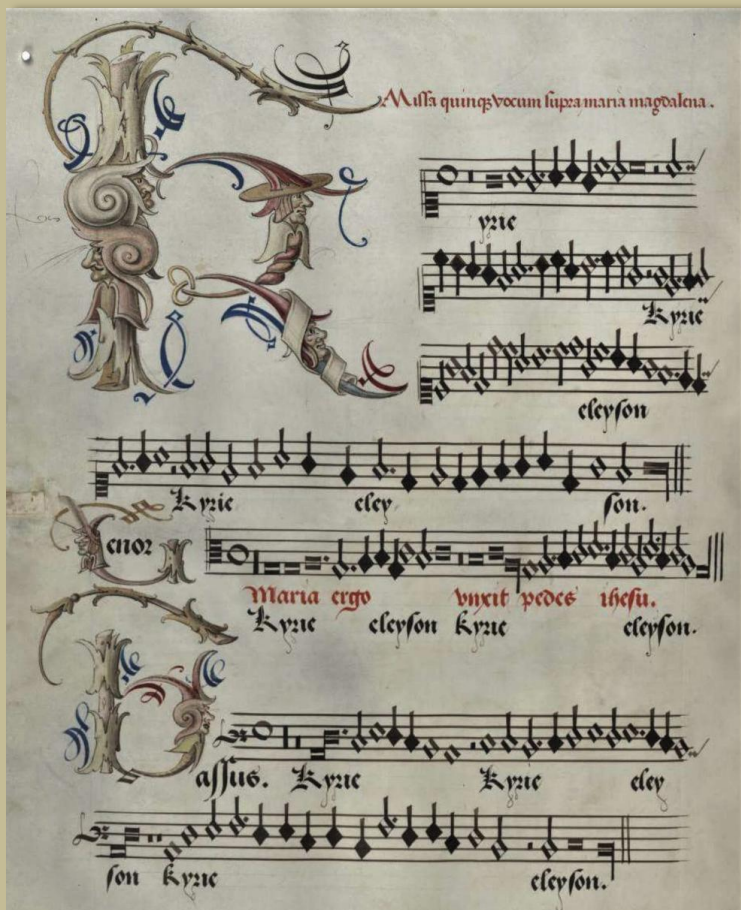 Missa quinqꝫ vocum supra maria magdalena.
Kyrie
Kyrie
eleyson
Kyrie eley son.
Tenor
Maria ergo vnxit pedes ihesu.
Kyrie eleyson kyrie eleyson.
Bassus. Kyrie Kyrie eley
son kyrie eleyson.